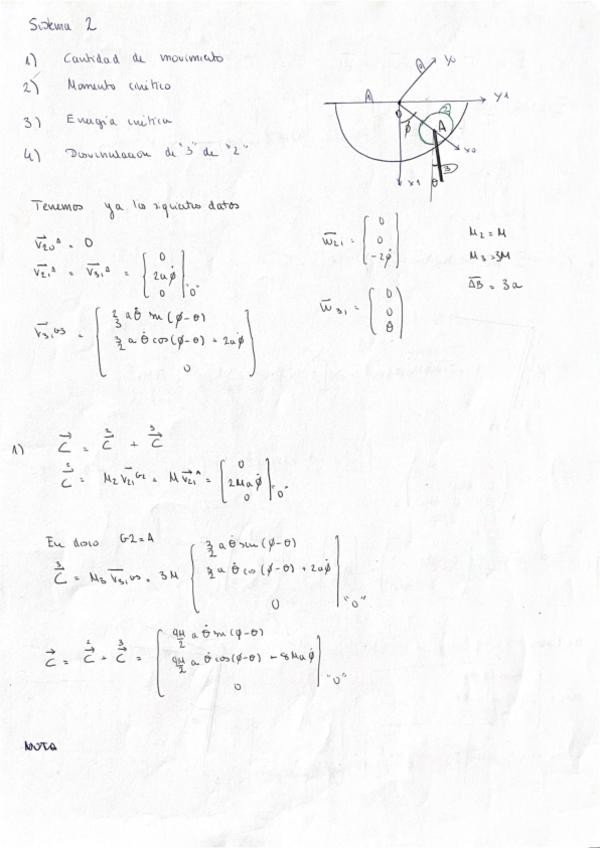 Sistema 2
1) Cantidad de movimiento
2) Momento cinético
3) Energía cinética
4) Desvinculación de "3" de "2"
A
y0
A
y1
0
φ
2
A
x0
3
x1
θ
Tenemos ya los siguientes datos
V20^A = 0
V21^A = V31^A = [0 2aφ̇ 0]"0"
V31^G3 = [2/3 aθ̇ sin(φ-θ) 3/2 aθ̇ cos(φ-θ) + 2aφ̇ 0]
W21 = [0 0 -2φ̇]
W31 = (0 0 θ̇)
M2 = M
M3 = 3M
AB = 3a
1) C = C² + C³
C² = M2 V21^G2 = M V21^A = [0 2Maφ̇ 0]"0"
En disco G2=A
C³ = M3 V31^G3 = 3M [3/2 aθ̇ sin(φ-θ) 3/2 aθ̇ cos(φ-θ) + 2aφ̇ 0]"0"
C = C² + C³ = [9M/2 aθ̇ sin(φ-θ) 9M/2 aθ̇ cos(φ-θ) + 8Maφ̇ 0]"0"
NOTA